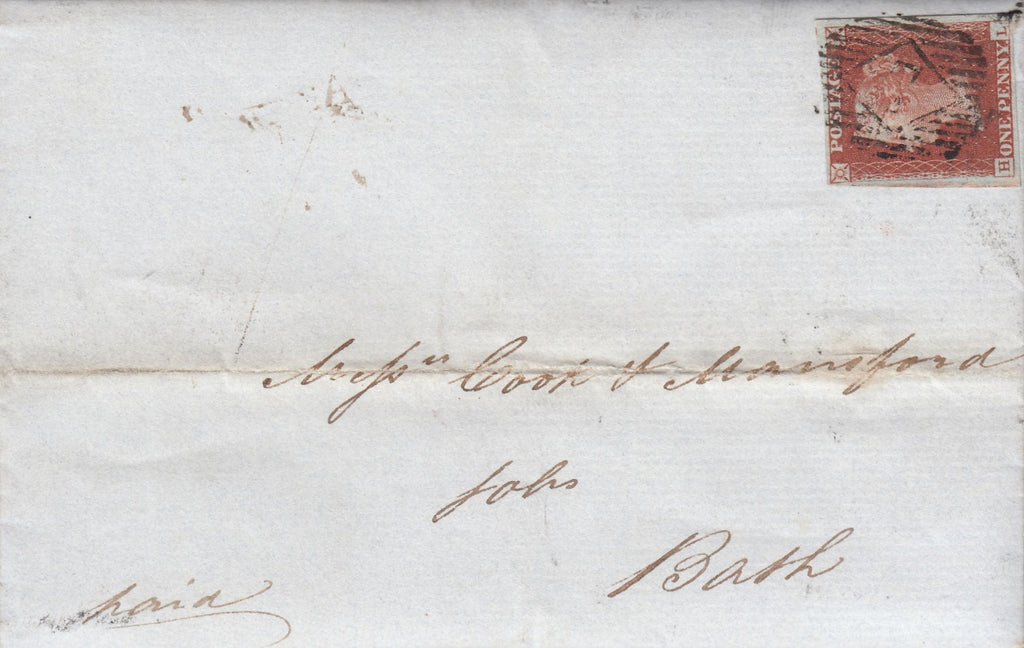 POSTAGE
ONE PENNY
H L
A
Messrs Cook & Mansford
Solrs
Bath
paid